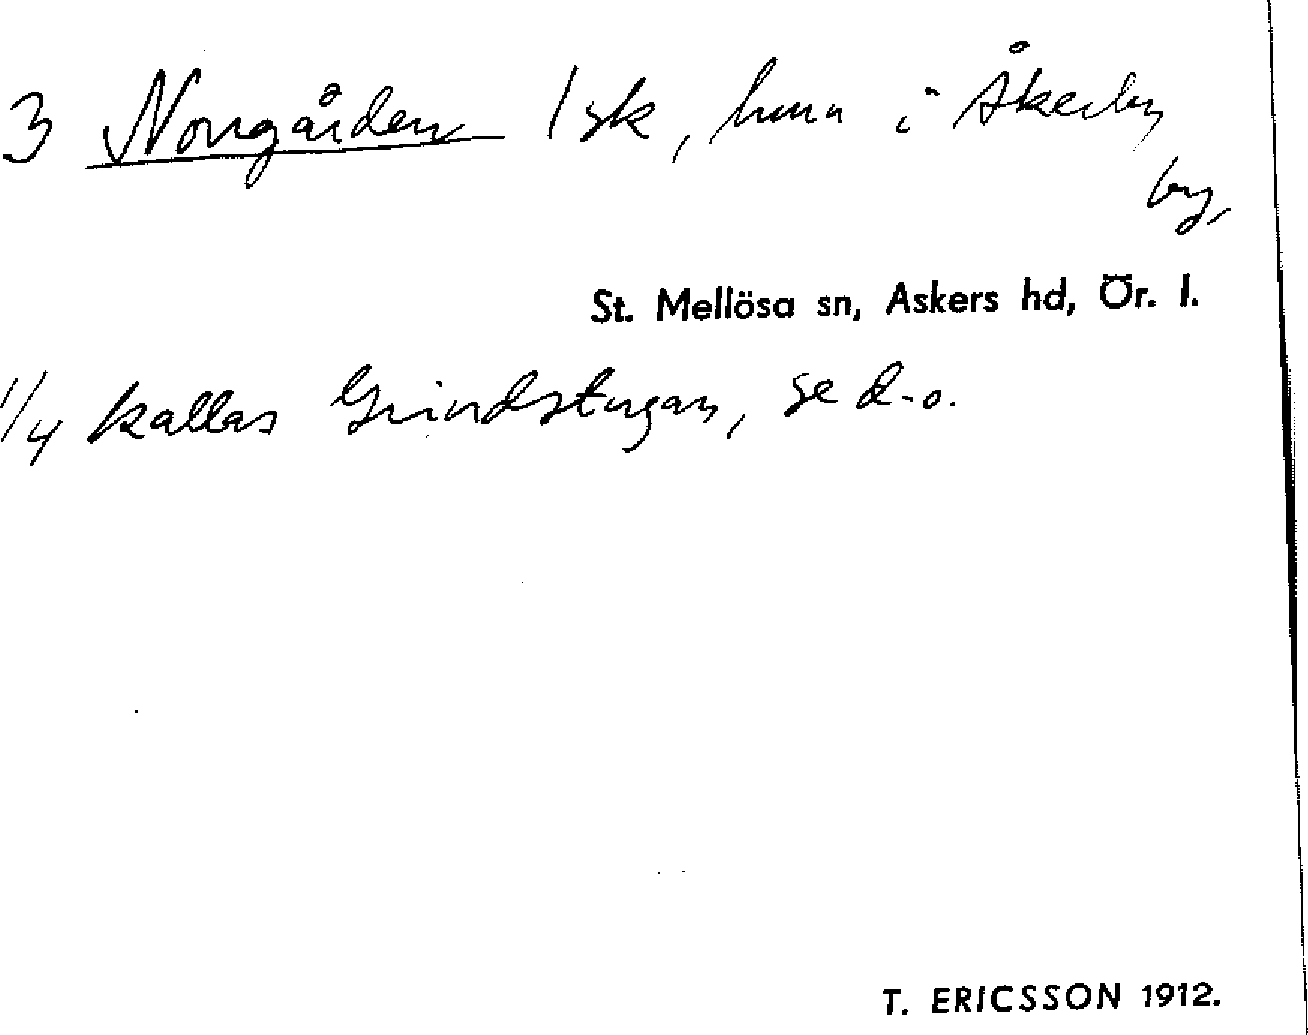 3 Norrgården 1 sk, hma i Åkerby
by,
St. Mellösa sn, Askers hd, Ör. l.
1/4 kallas Grindstugan, se d.o.
T. ERICSSON 1912.